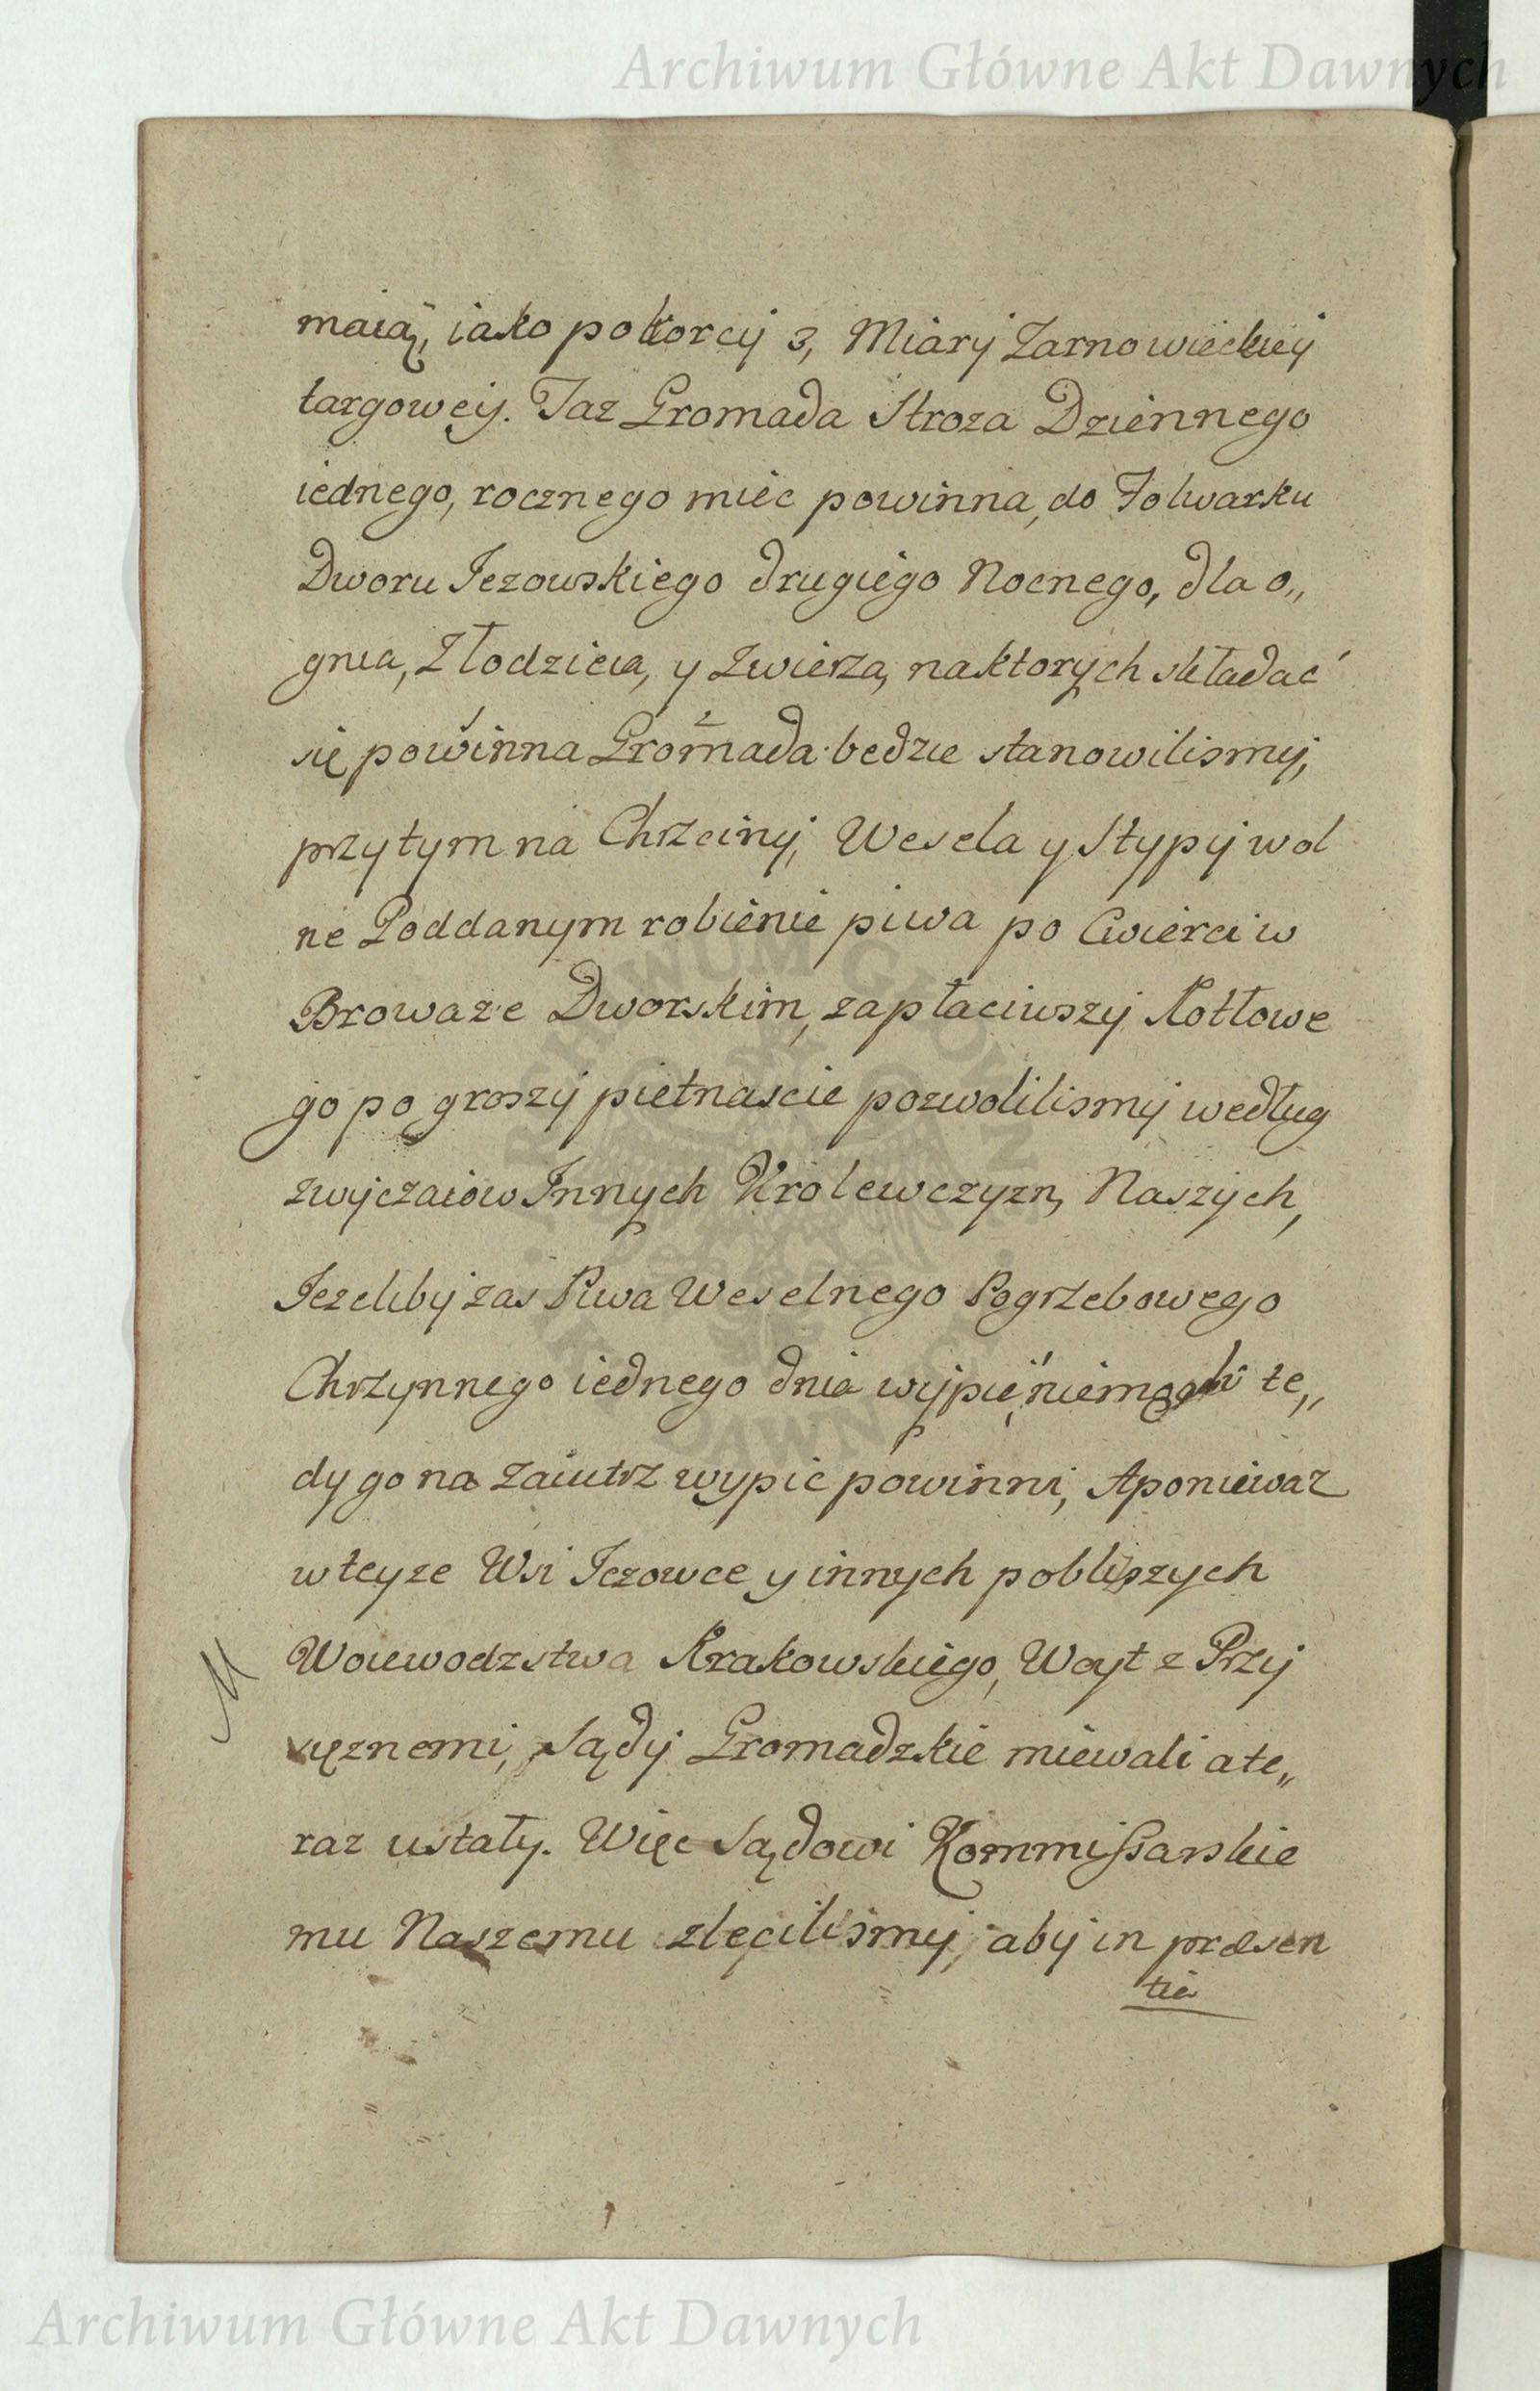 Archiwum Główne Akt Dawnych
maią, iako po korcy 3, Miary Zarnowieckiey
targowey. Taz Gromada Stroza Dziennego
iednego, rocznego miec powinna, do Folwarku
Dworu Iezowskiego drugiego Nocnego, dla o„
gnia, Złodzieia, y Zwierza, naktorych składać
się powinna Gromada będzie stanowilismy,
przytym na Chrzciny, Wesela y Stypy wol
ne Poddanym robienie piwa po Cwierci w
Browarze Dworskim, zapłaciwszy Kotłowe
go po groszy pietnascie pozwolilismy według
zwyczaiow Innych Krolewczyzn, Naszych,
Iezeliby zas Piwa Weselnego Pogrzebowego
Chrzynnego iednego dnia wypić niemogli te„
dy go na zaiutrz wypic powinni, Aponiewaz
wteyze Wsi Iezowce y innych pobliszych
M
Woiewodztwa Krakowskiego, Woyt z Przy
sięznemi, Sądy Gromadzkie miewali ate„
raz ustały. Więc Sądowi Kommissarskie
mu Naszemu zlecilismy, aby in præsen
tia
Archiwum Główne Akt Dawnych